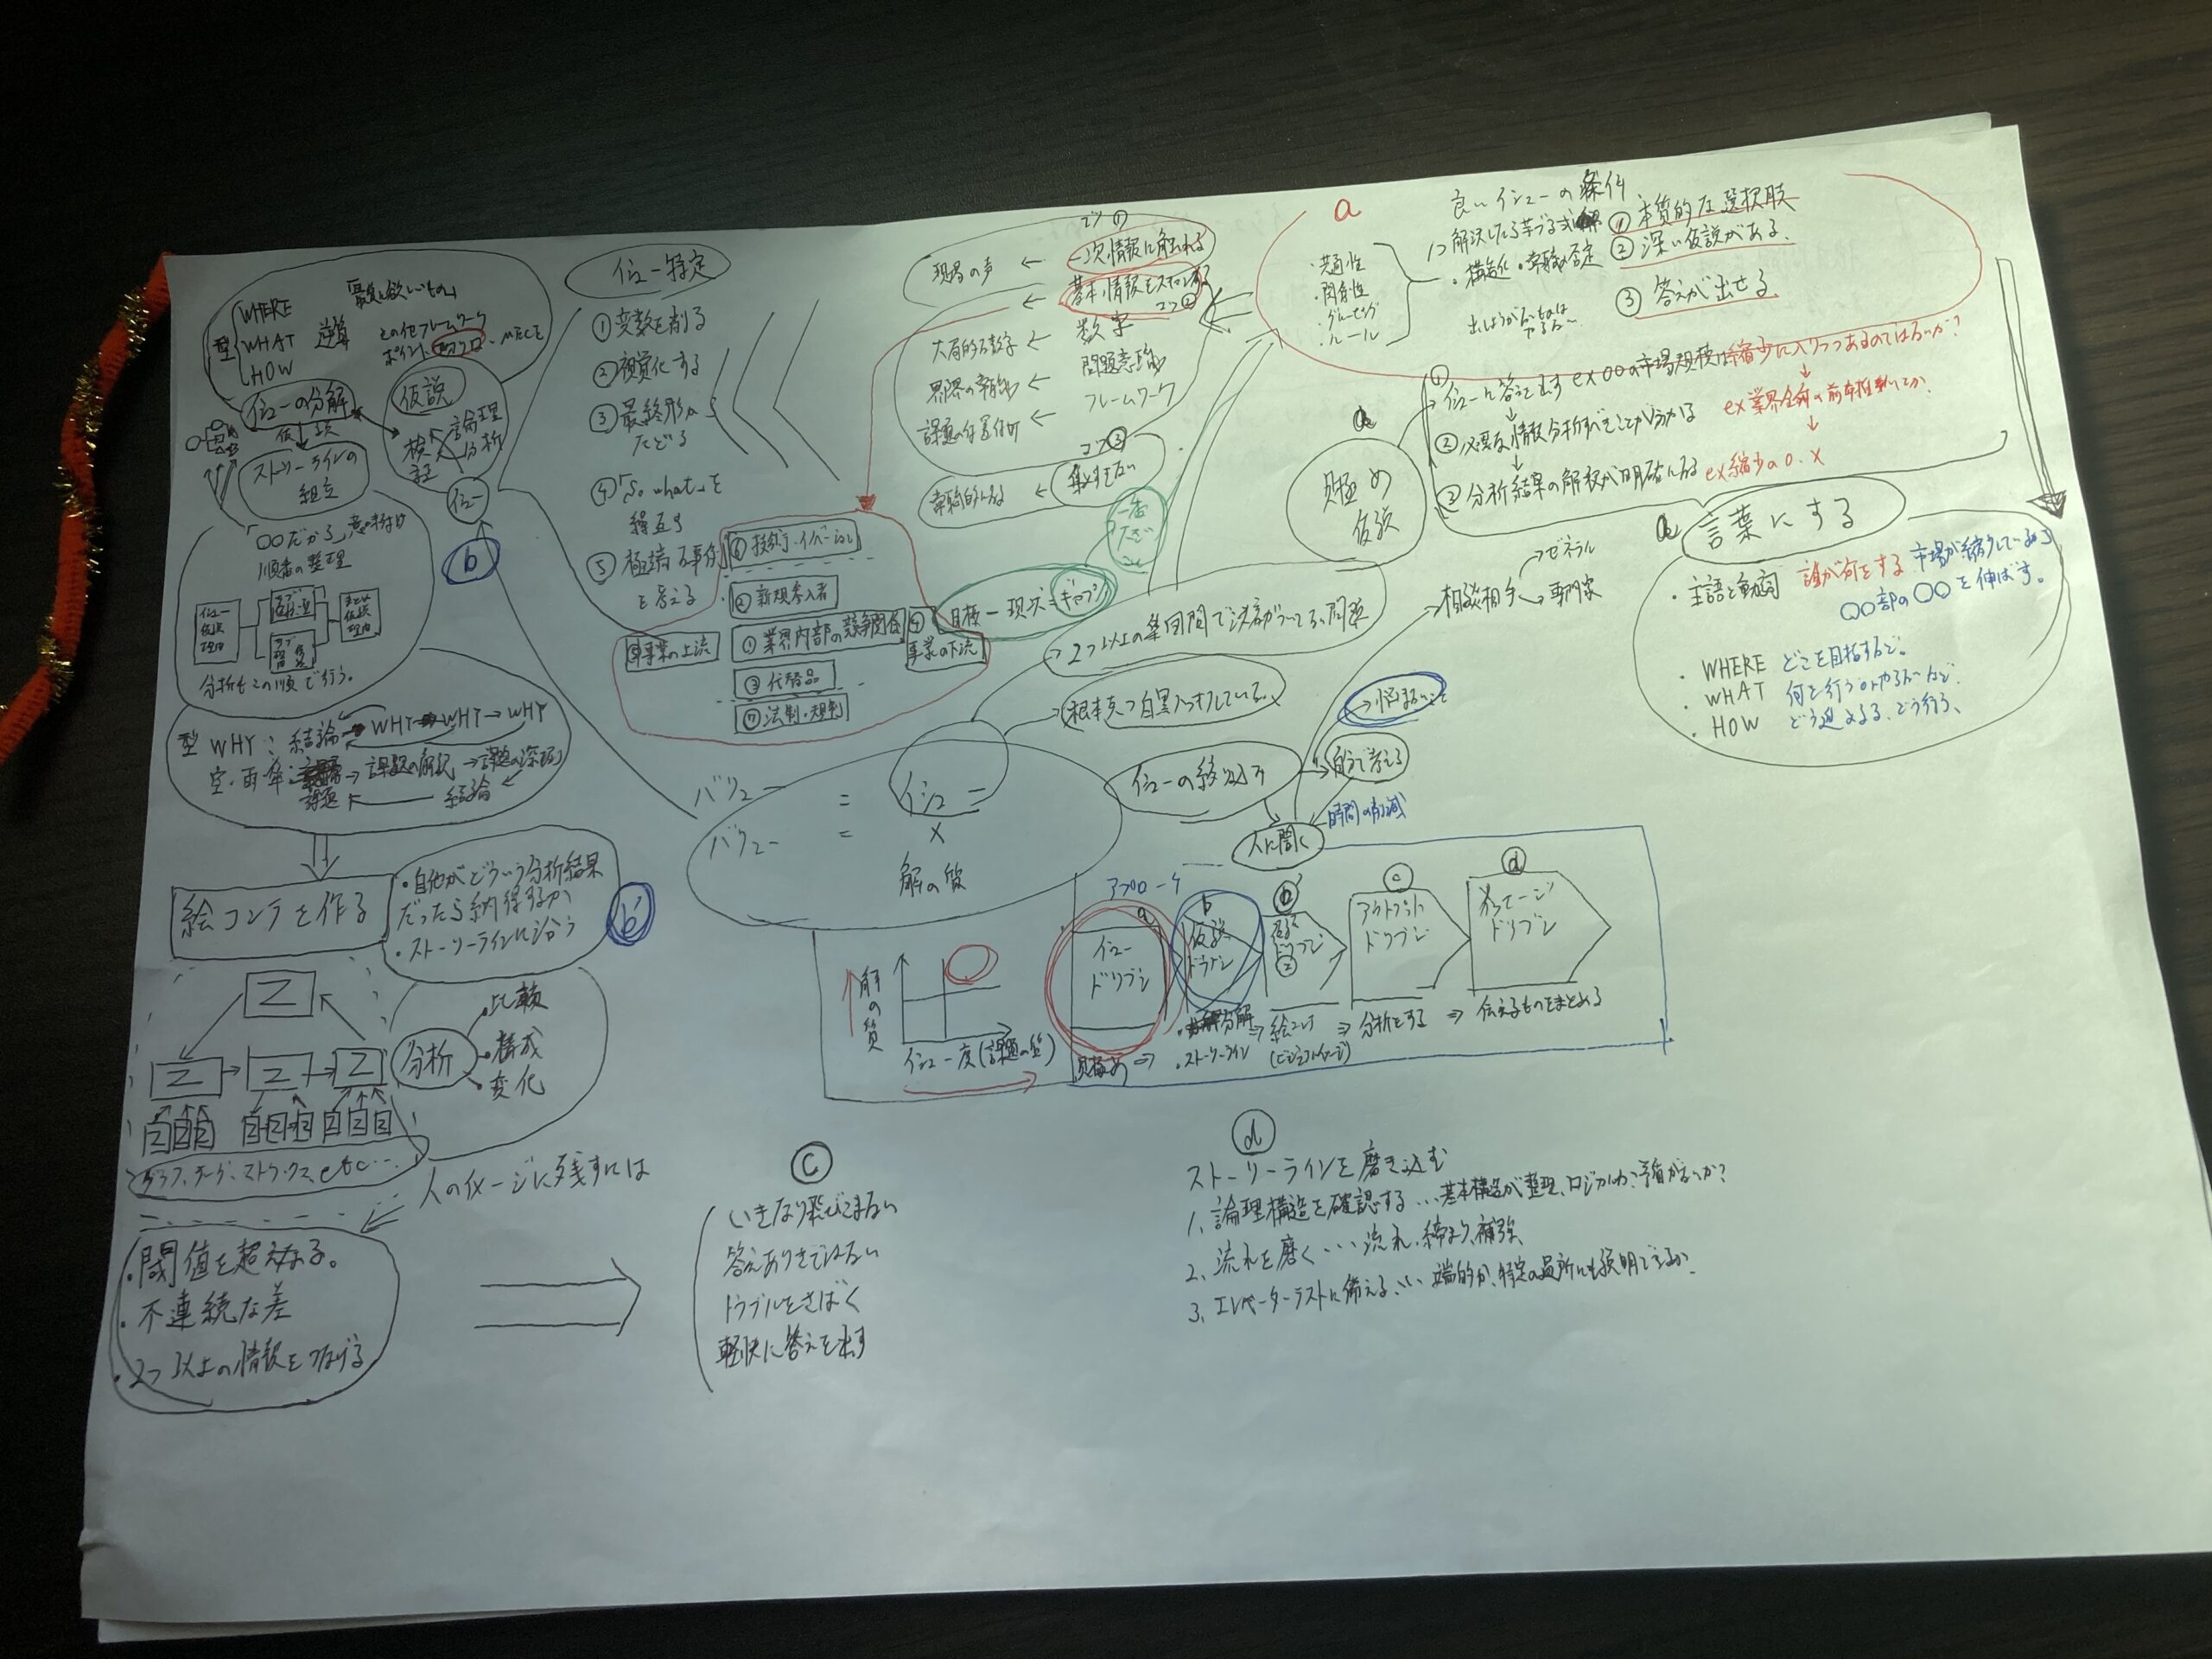 型
WHERE
WHAT
HOW
逆算
「最後に欲しいもの」
その他フレームワーク
ポイント、
MECE
イシューの分解
仮説
検証
論理
分析
ストーリーラインの
組立
イシュー
b
「○○だから」意味付け
順番の整理
イシュー
仮説
理由
サブ
サブ
まとめ
仮説
理由
分析もこの順で行う。
型 WHY: 結論 → WHY → WHY → WHY
空・雨・傘: 課題 → 課題の解釈 → 課題の深堀り
結論
絵コンテを作る
・自他がどういう分析結果
だったら納得するか
・ストーリーラインに沿う
b'
分析
・比較
・構成
・変化
グラフ、チャート、ストラックス、etc…
人のイメージに残すには
・閾値を超えなる。
・不連続な差
・2つ以上の情報をつなげる
イシュー特定
①変数を削る
②視覚化する
③最終形から
たどる
④「So what」を
繰返す
⑤極端な事例
を考える
⑥技術・イノベーション
②新規参入者
①業界内部の競争関係
③代替品
⑦法制・規制
事業の上流
④
事業の下流
コツ①
一次情報に触れる
現場の声 ←
基本情報をスキャンする
コツ②
数字
大局的な数字 ←
問題意識
業界の常識 ←
フレームワーク
課題の位置付け ←
コツ③
集めすぎない
常識的になる ←
一番
大事
目標 - 現状 = ギャップ
2つ以上の集団間で決着がついてない問題
根本かつ白黒ハッキリしている。
バリュー = イシュー
バリュー = イシュー
×
解の質
解の質
イシュー度(課題の質)
a
良いイシューの条件
・共通性
・関係性
・グルーピング
・ルール
解決したら芋づる式
・構造化・常識の否定
①本質的な選択肢
②深い仮説がある。
③答えが出せる
見極め
仮説
①イシューに答えを出す
ex ○○の市場規模は縮少に入りつつあるのではないか?
②必要な情報分析すべきことが分かる
③分析結果の解釈が明確になる
ex 縮少の○、×
相談相手
ゼネラル
専門家
言葉にする
・主語と動詞
誰が何をする
市場が縮少している為
○○部の○○を伸ばす。
・WHERE どこを目指すか。
・WHAT 何を行うorやらないか
・HOW どう進める、どう行う、
イシューの絞込み
→悩まないこと
自分で考える
時間の削減
人に聞く
アプローチ
a
イシュー
ドリブン
b
仮説
ドリブン
b'
仮説
ドリブン
②
c
アウトプット
ドリブン
d
メッセージ
ドリブン
見極め ⇒
・分解
・ストーリーライン
⇒ 絵コンテ
(ビジュアルイメージ)
⇒ 分析をする ⇒ 伝えるものをまとめる
c
いきなり飛びこまない
答えありきではない
トラブルをさばく
軽快に答えを出す
d
ストーリーラインを磨き込む
1. 論理構造を確認する…基本構造が整理、ロジカルか、矛盾がないか?
2. 流れを磨く…流れ、締まり、補強、
3. エレベーターテストに備える…端的か、特定の場所にも説明できるか、